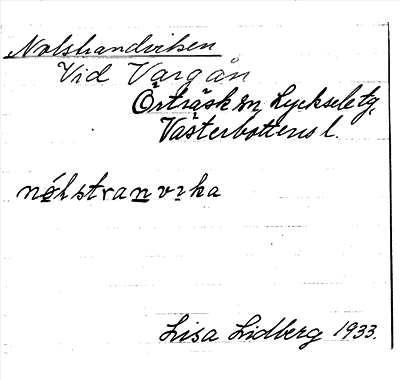 Nolstrandviken
Vid Vargån
Örträsk sn, Lycksele tg.
Västerbottens l.
nólstranvika
Lisa Lidberg 1933.